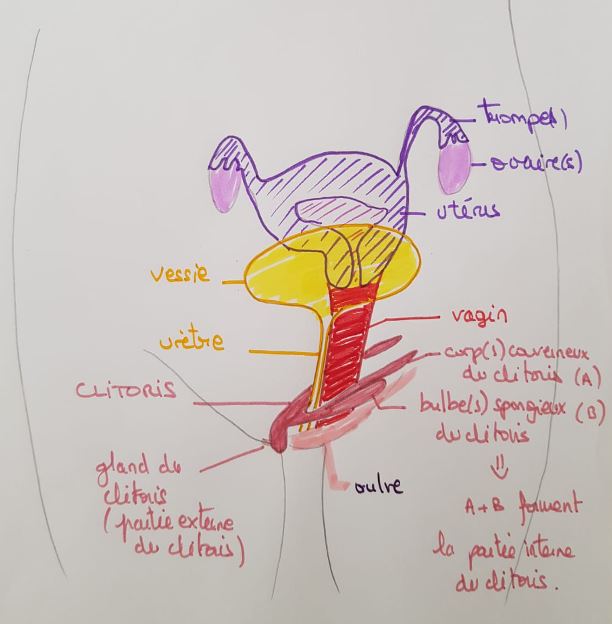 trompe(s)
ovaire(s)
utérus
vessie
vagin
urètre
corp(s) caverneux
du clitoris (A)
CLITORIS
bulbe(s) spongieux (B)
du clitoris
⇓
gland du
clitoris
(partie externe
du clitoris)
vulve
A+B forment
la partie interne
du clitoris.